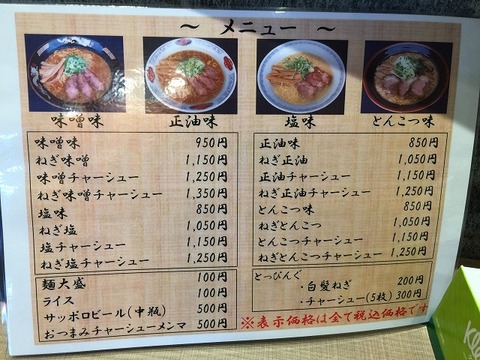 ～ メニュー ～
味噌味 正油味 塩味 とんこつ味
味噌味 950円
ねぎ味噌 1,150円
味噌チャーシュー 1,250円
ねぎ味噌チャーシュー 1,350円
塩味 850円
ねぎ塩 1,050円
塩チャーシュー 1,150円
ねぎ塩チャーシュー 1,250円
正油味 850円
ねぎ正油 1,050円
正油チャーシュー 1,150円
ねぎ正油チャーシュー 1,250円
とんこつ味 850円
ねぎとんこつ 1,050円
とんこつチャーシュー 1,150円
ねぎとんこつチャーシュー 1,250円
麺大盛 100円
ライス 100円
サッポロビール(中瓶) 500円
おつまみチャーシューメンマ 500円
とっぴんぐ
・白髪ねぎ 200円
・チャーシュー(5枚) 300円
※表示価格は全て税込価格です